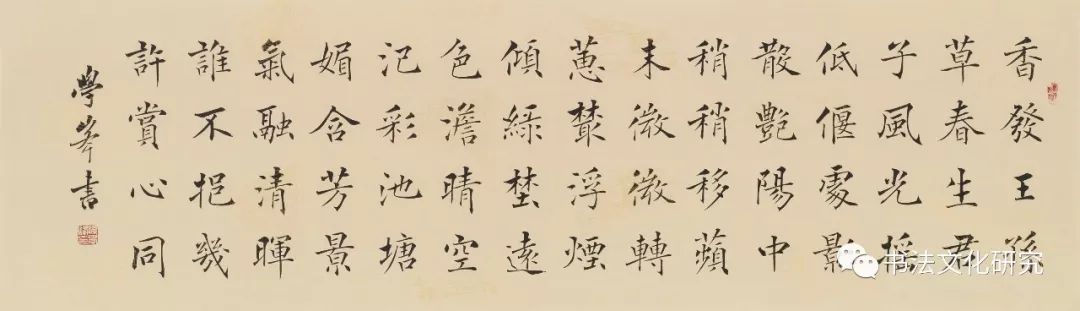 香發王孫
草春生君
子風光搖
低偃處影
散艷陽中
稍稍移蘋
末微微轉
蕙叢浮煙
傾綠埜遠
色澹晴空
氾彩池塘
媚含芳景
氣融清暉
誰不挹幾
許賞心同
學峯書
书法文化研究